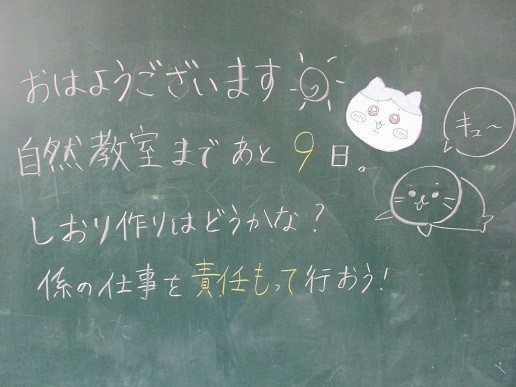 おはようございます
自然教室まであと9日。
しおり作りはどうかな？
係の仕事を責任もって行おう！
キュ〜